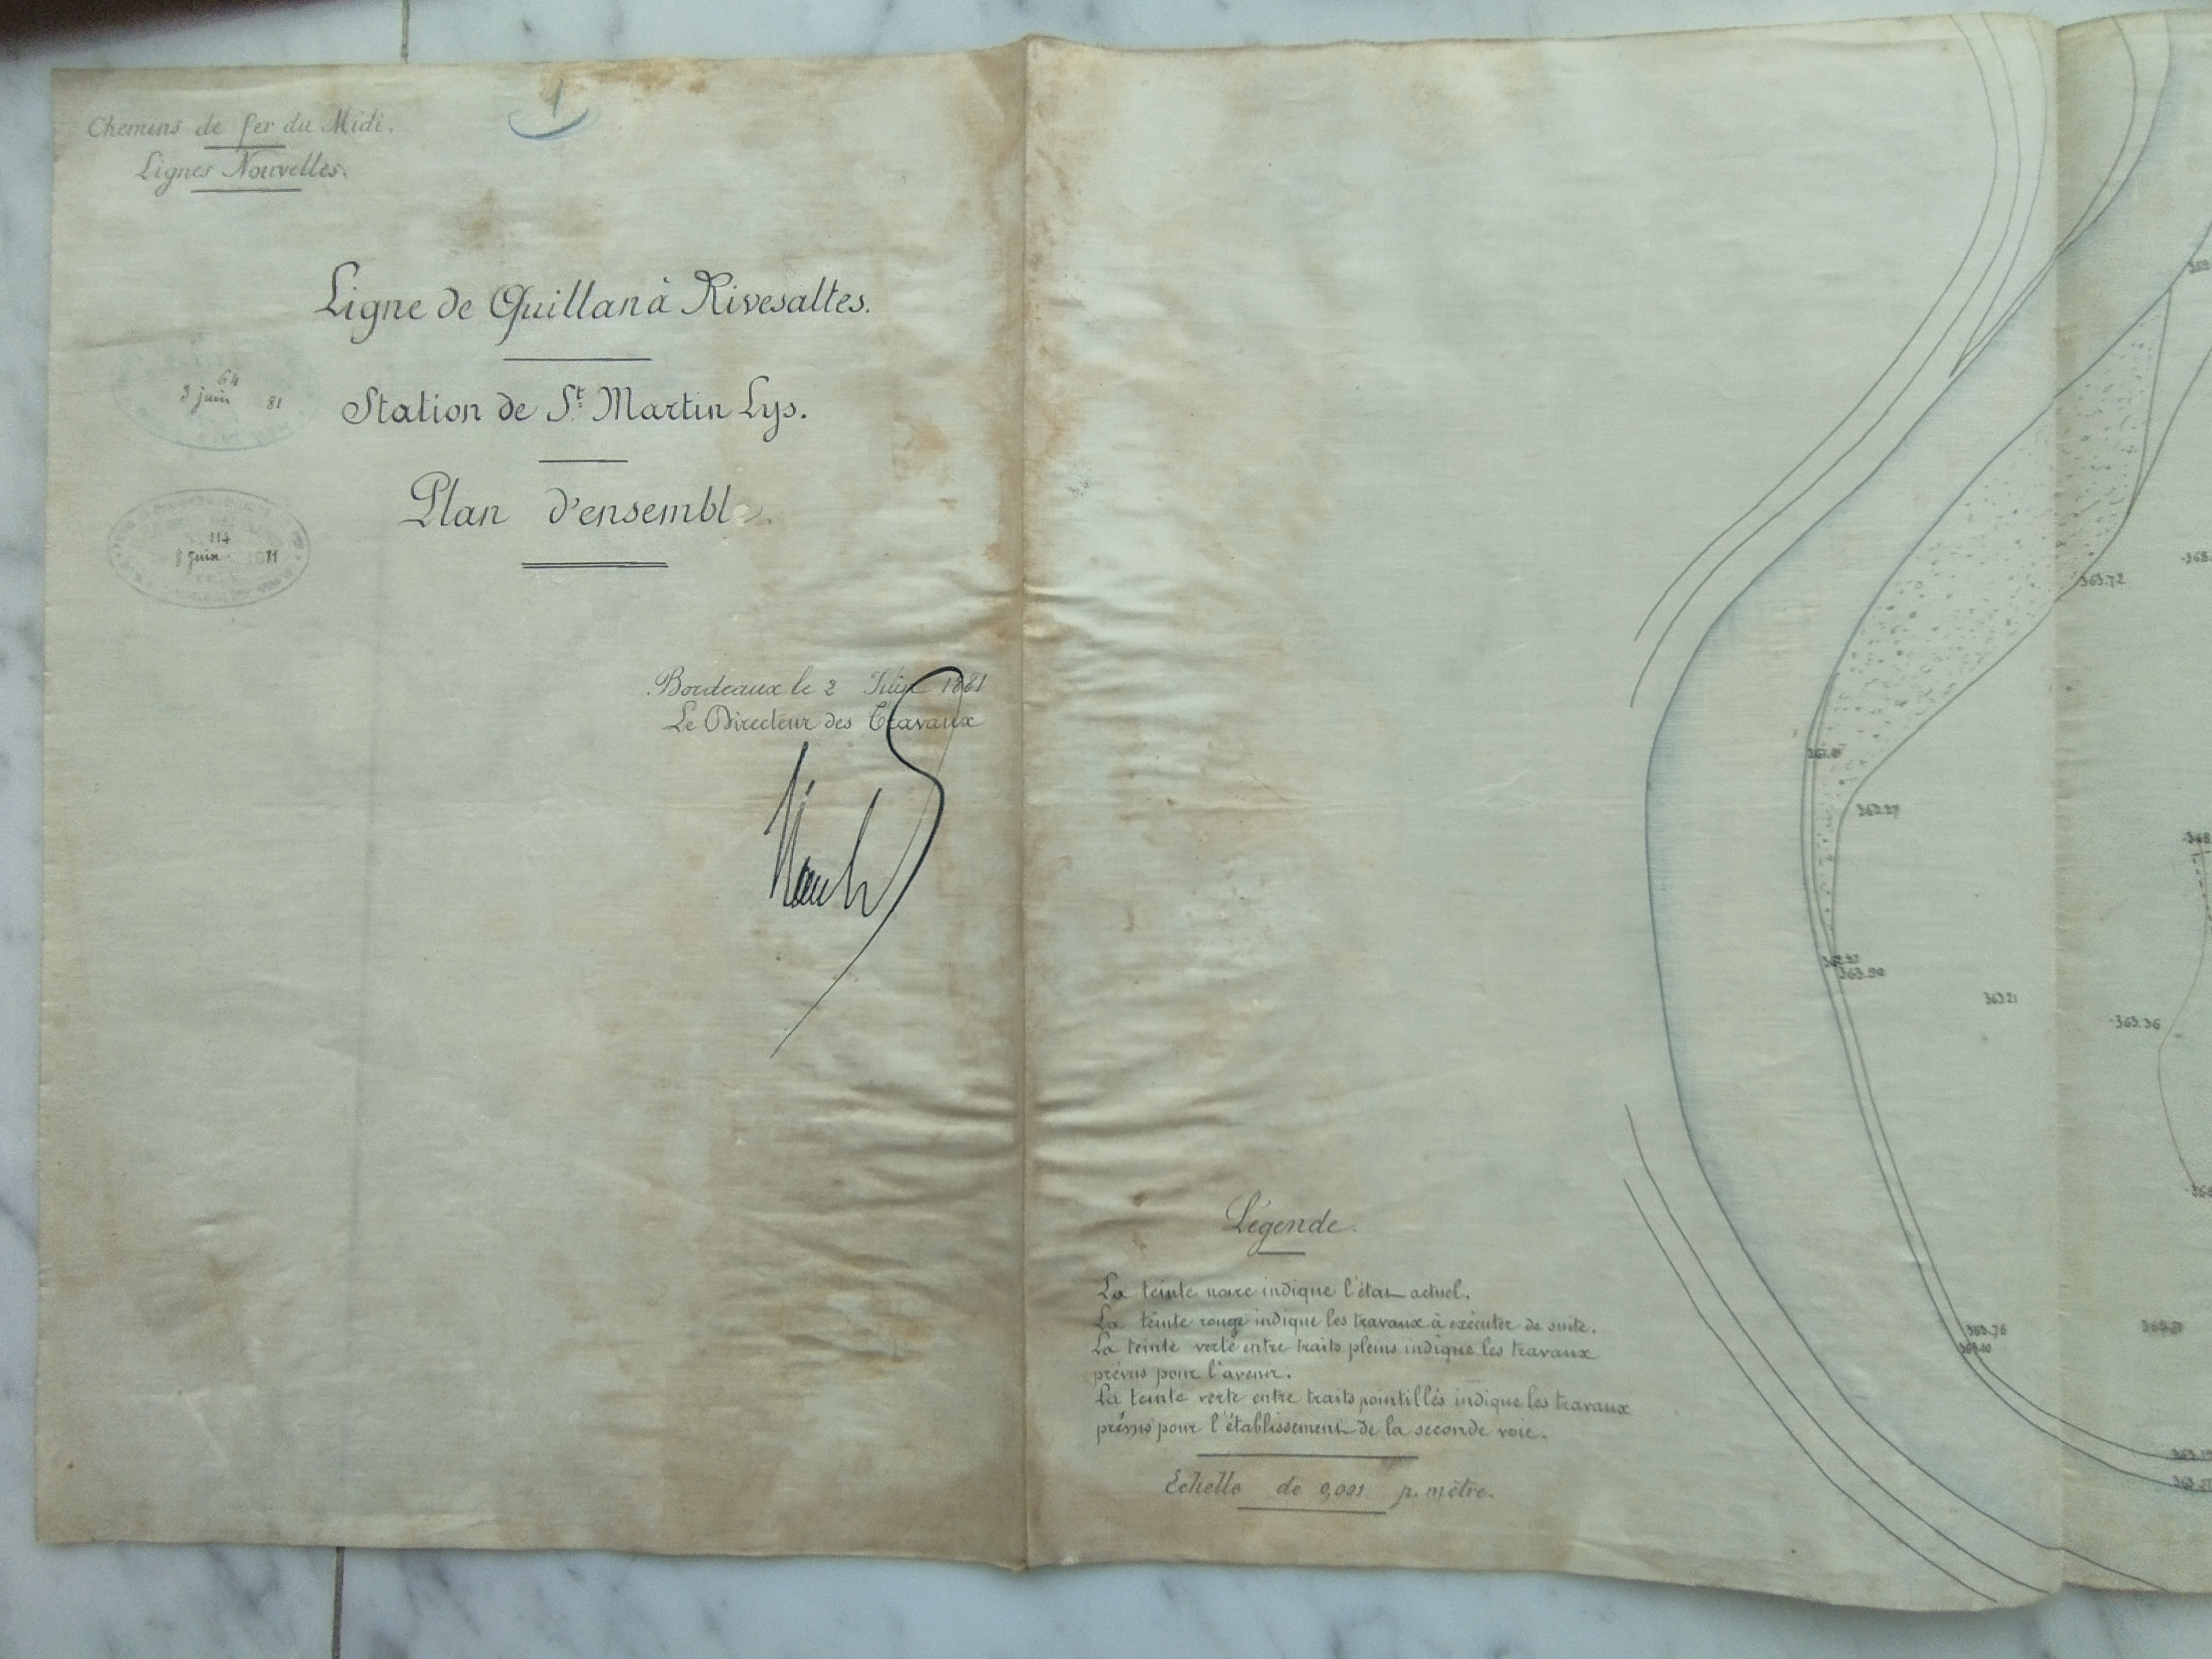 Chemins de fer du Midi.
Lignes Nouvelles.
1
Ligne de Quillan à Rivesaltes.
Station de St Martin Lys.
Plan d'ensemble.
64
3 juin 81
114
8 Juin 1881
Bordeaux le 2 Juin 1881
Le Directeur des Travaux
Légende.
La teinte noire indique l'état actuel.
La teinte rouge indique les travaux à exécuter de suite.
La teinte verte entre traits pleins indique les travaux
prévus pour l'avenir.
La teinte verte entre traits pointillés indique les travaux
prévus pour l'établissement de la seconde voie.
Echelle de 0,001 p. mètre.
363.72
363.27
363.90
363.21
363.36
363.76